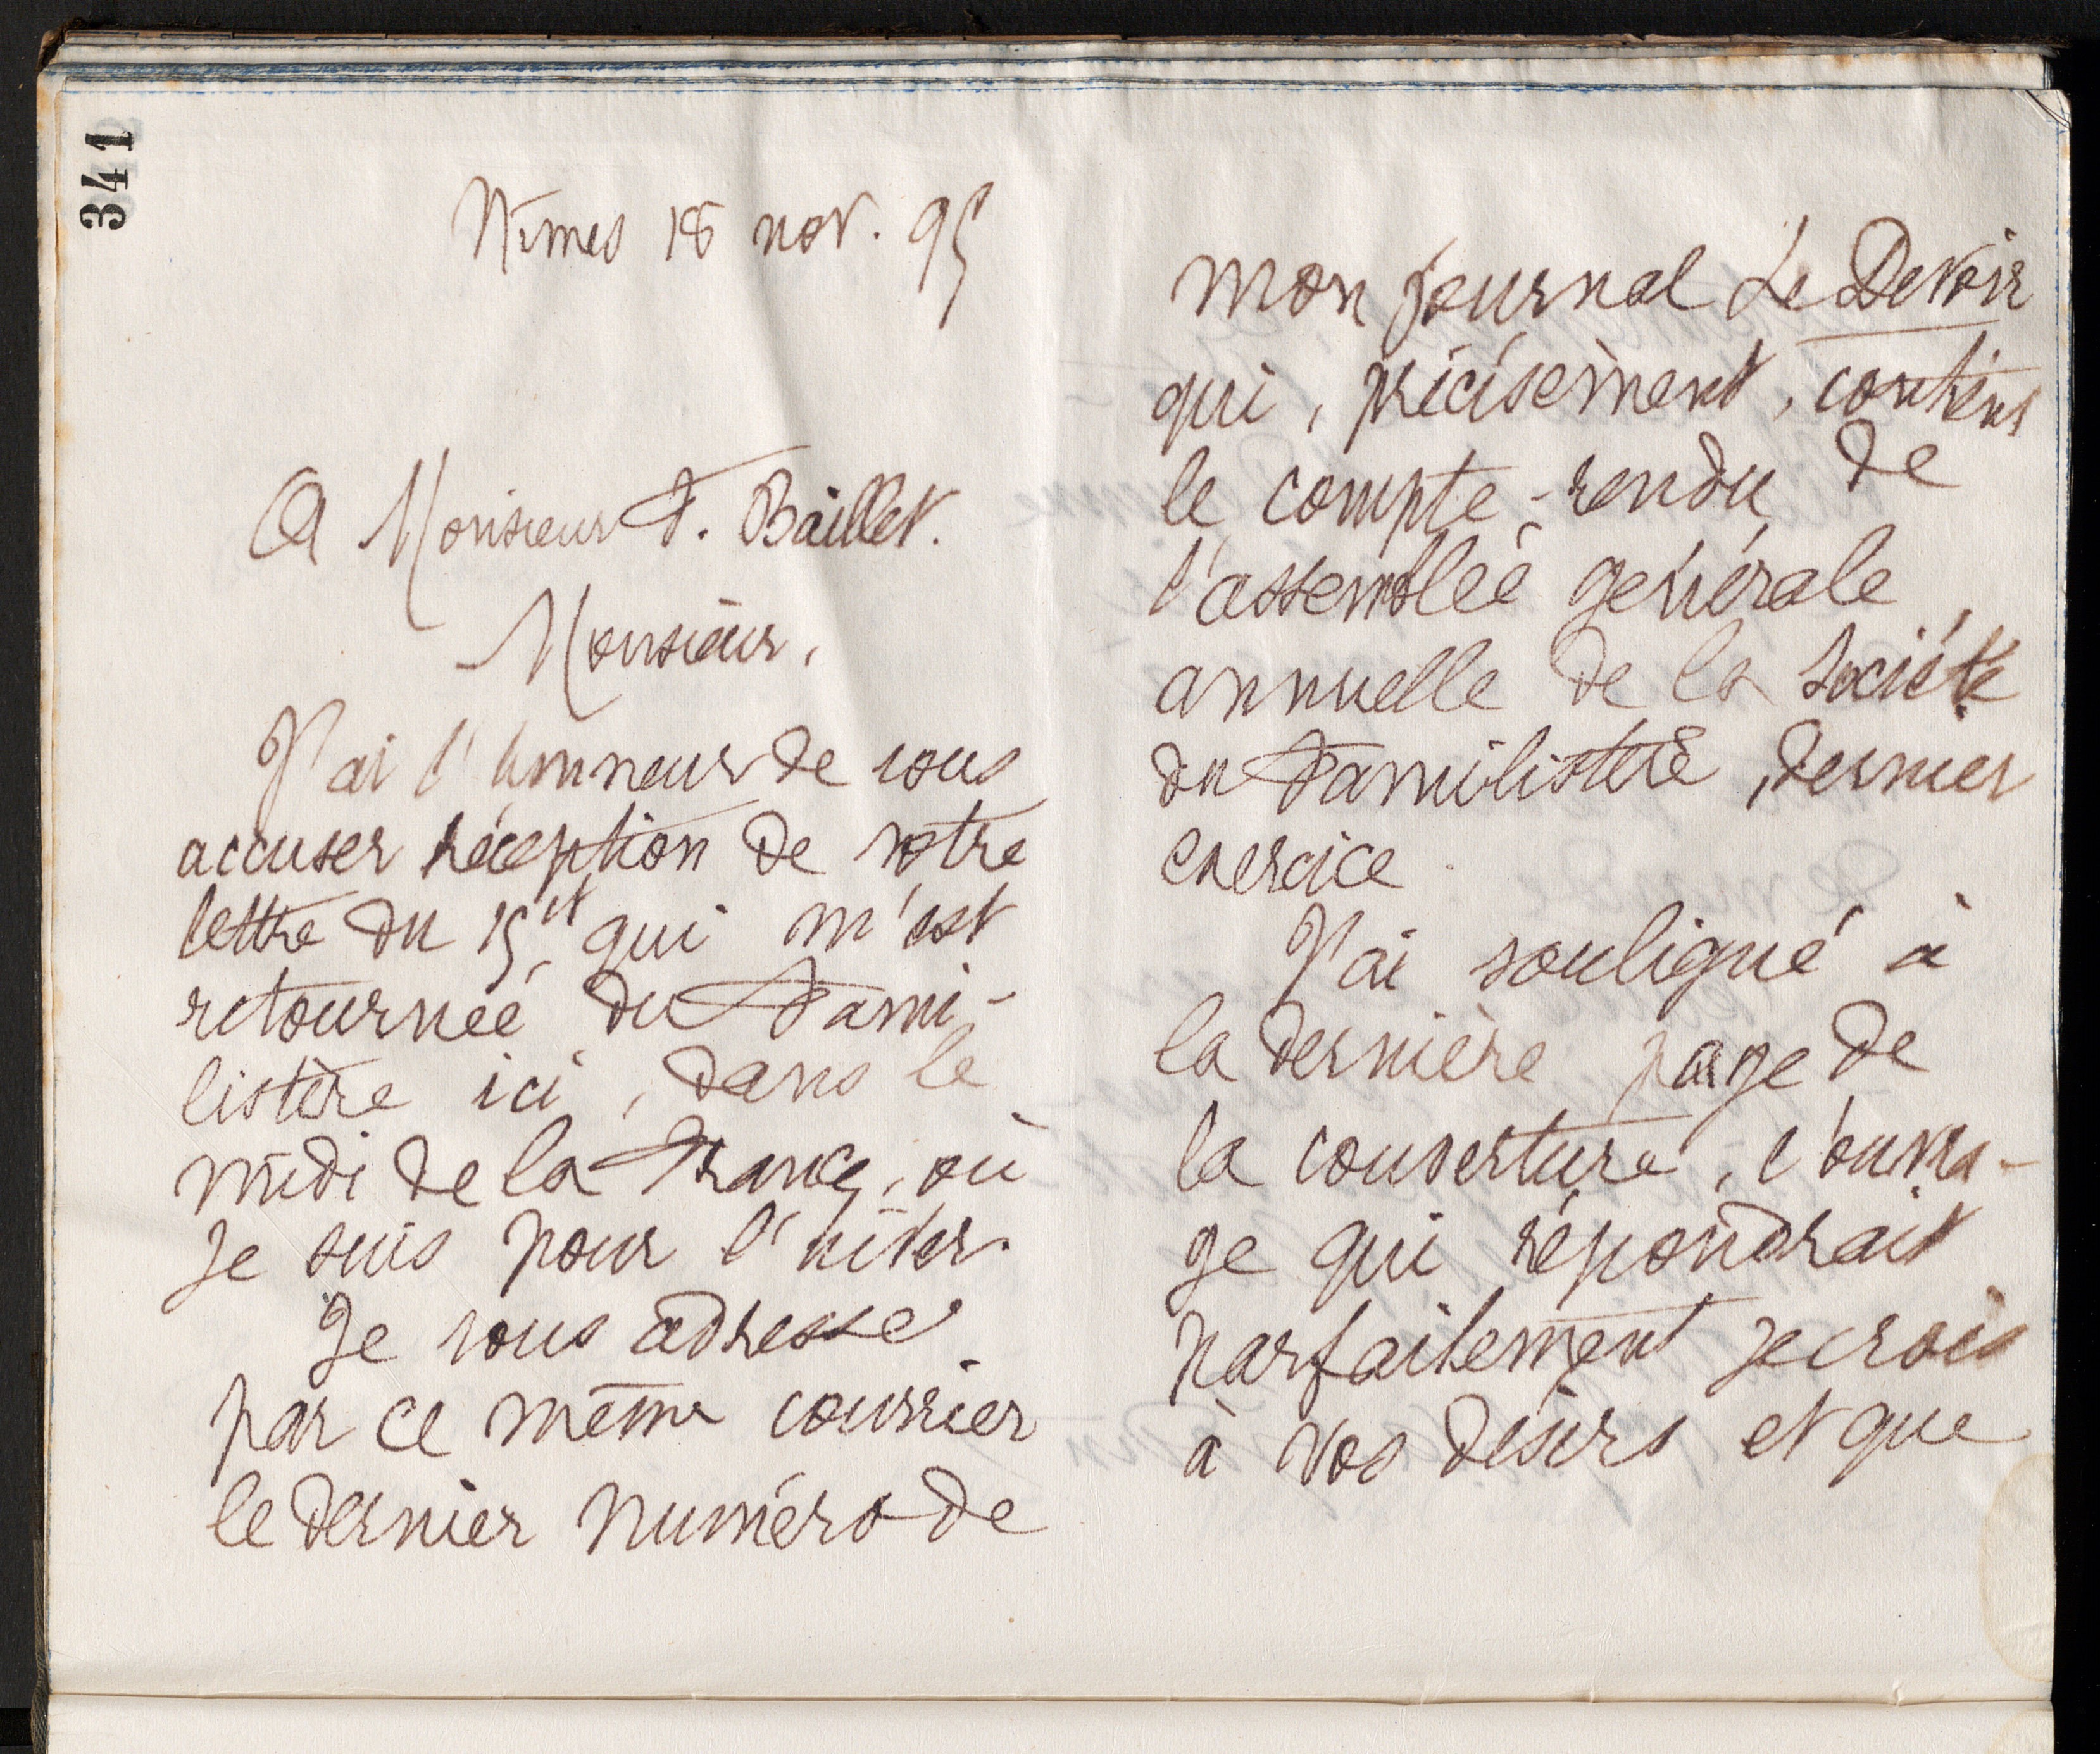 341
Nîmes 18 nov. 95
A Monsieur F. Baillet.
Monsieur,
J'ai l'honneur de vous
accuser réception de votre
lettre du 15 ct qui m'est
retournée du Fami-
listère ici, dans le
midi de la France, où
je suis pour l'hiver.
Je vous adresse
par ce même courrier
le dernier numéro de
mon journal Le Devoir
qui, précisément, contient
le compte-rendu de
l'assemblée générale
annuelle de la Société
du Familistère, dernier
exercice.
J'ai souligné à
la dernière page de
la couverture, l'ouvra-
ge qui répondrait
parfaitement je crois
à vos désirs et que